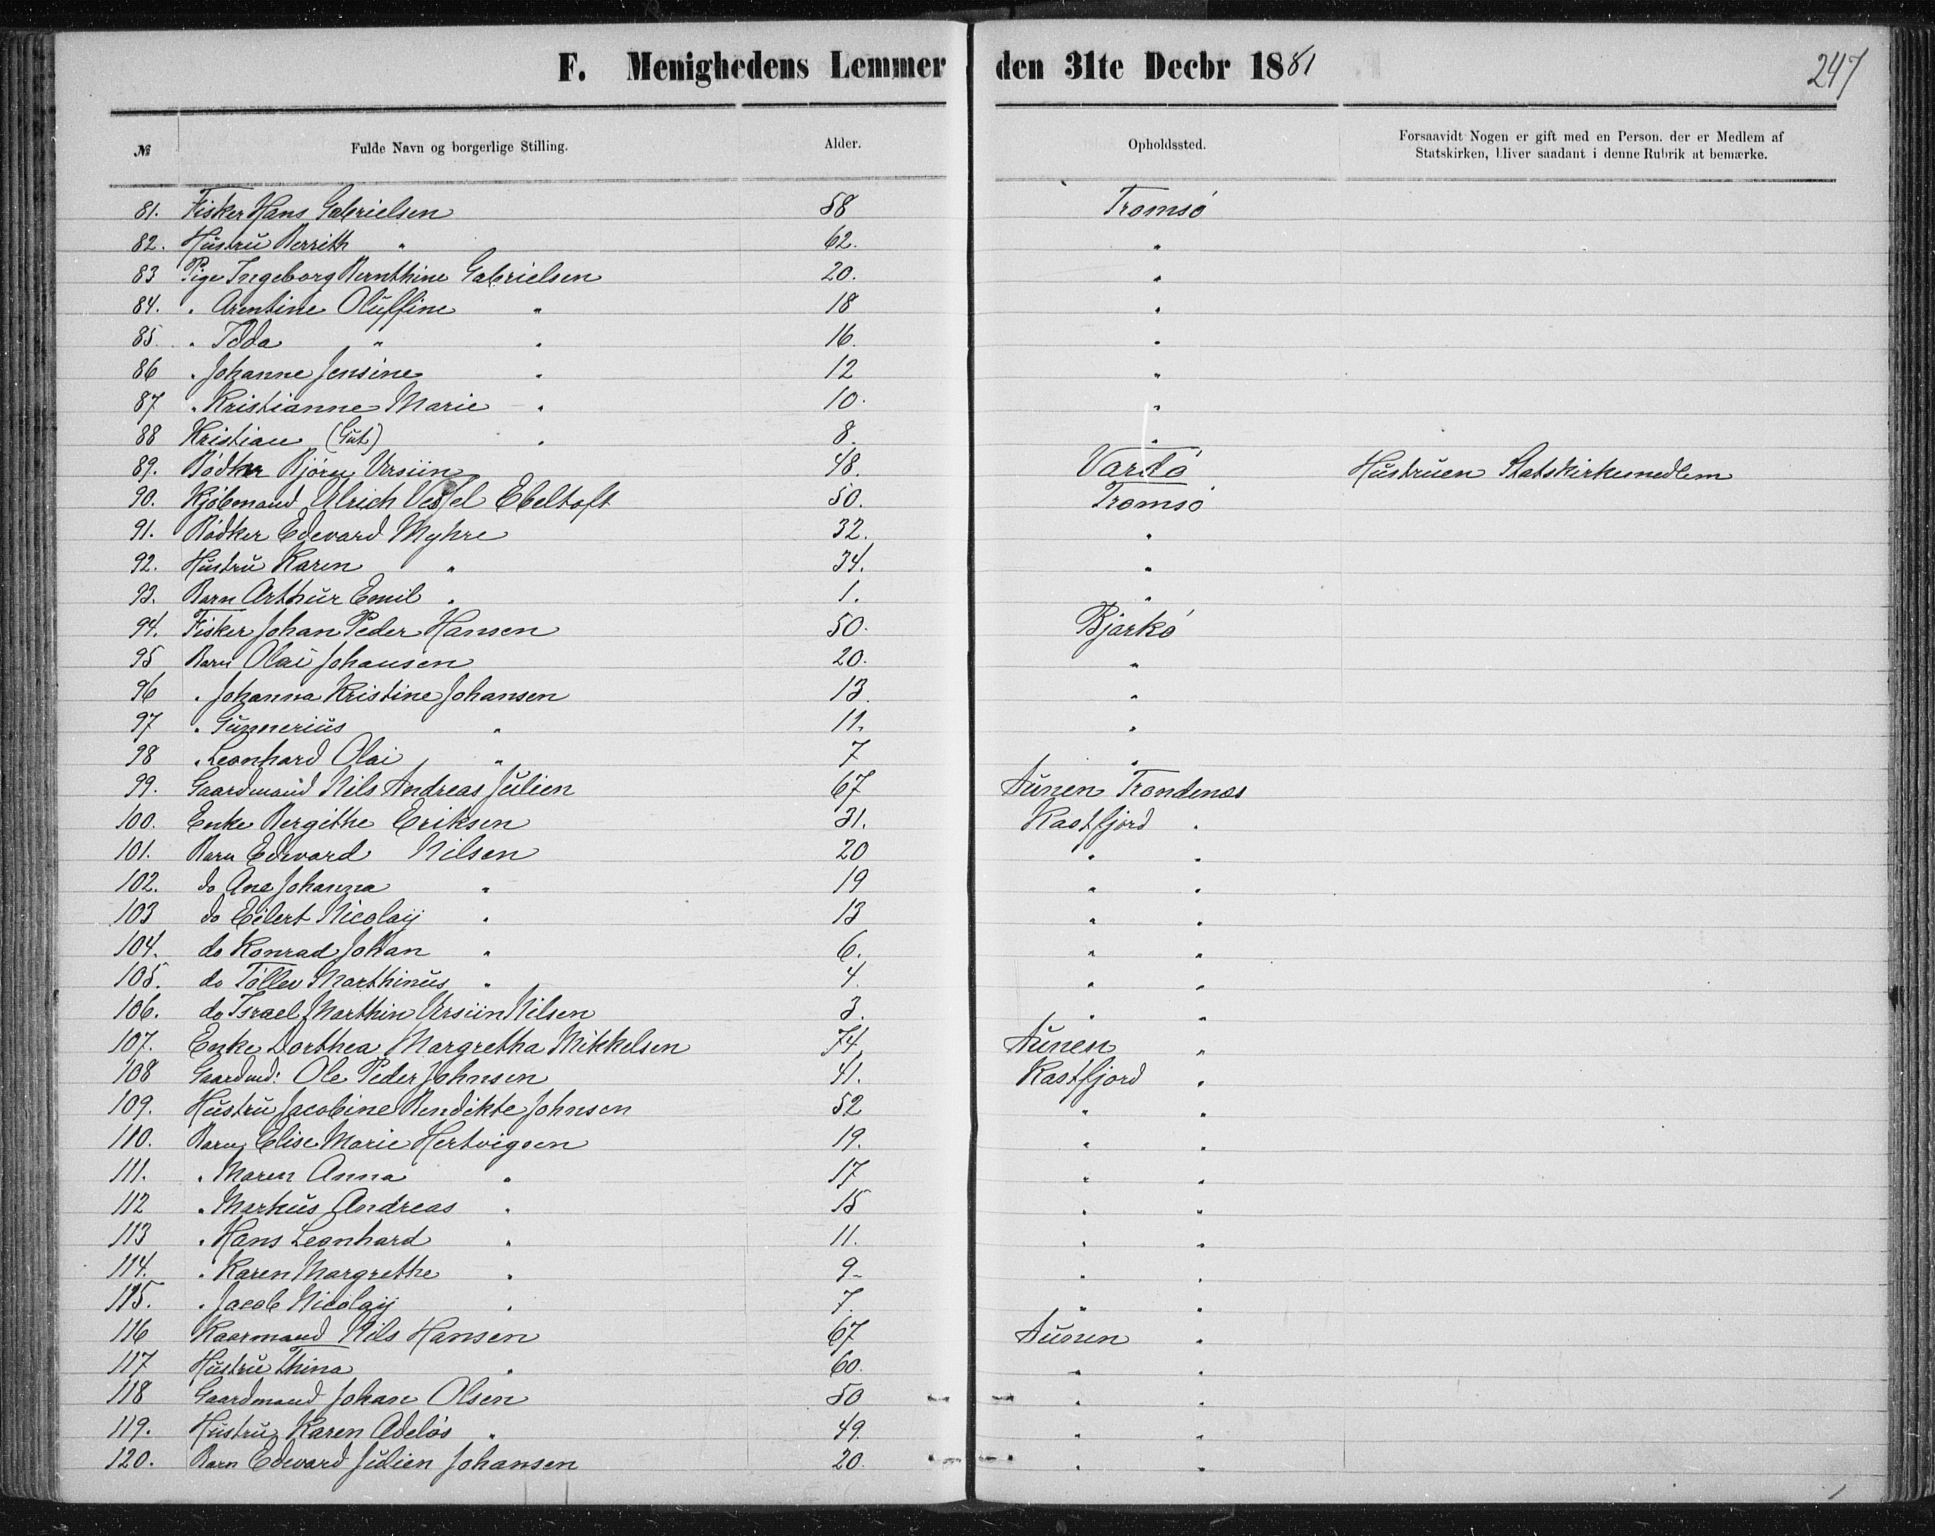 F. Menighedens Lemmer den 31te Decbr 1881 247
№ Fulde Navn og borgerlige Stilling. Alder. Opholdssted. Forsaavidt Nogen er gift med en Person, der er Medlem af
Statskirken, bliver saadant i denne Rubrik at bemærke.
81. Fisker Hans Gabrielsen 58 Tromsö
82. Hustru Berrith " 62. "
83 Pige Ingeborg Bernthine Gabrielsen 20. "
84. " Arentine Oluffine " 18 "
85. " Toda " " 16. "
86 " Johanne Jensine " 12 "
87 " Kristianne Marie " 10. "
88 Kristian (Gut) " 8. "
89. Bödker Björn Ursiin 48. Vardö Hustruen Statskirkemedlem
90. Kjöbmand Ulrich Vessel Ebeltoft 50. Tromsö
91. Bödker Edevard Myhre 32. "
92. Hustru Karen " 34. "
93. Barn Arthur Emil " 1. "
94. Fisker Johan Peder Hansen 50. Bjarkö
95 Barn Olai Johansen 20. "
96 " Johanna Kristine Johansen 13. "
97 " Gunnerius " 11. "
98 " Leonhard Olai " 7 "
99. Gaardmand Nils Andreas Julien 67 Aunen Trondenæs
100. Enke Bergithe Eriksen 31. Kastfjord "
101. Barn Edevard Nilsen 20 " "
102. do Ane Johanna " 19 " "
103 do Eilert Nicolaij " 13 " "
104. do Konrad Johan " 6. " "
105. do Tollev Marthinus " 4. " "
106. do Israel Marthin Ursiin Nilsen 3. " "
107. Enke Dorthea Margretha Mikkelsen 74. Aunen "
108 Gaardmd: Ole Peder Johnsen 41. Kastfjord "
109. Hustru Jacobine Bendikte Johnsen 52 " "
110. Barn Elise Marie Hertvigsen 19. " "
111. " Maren Anna " 17 " "
112 " Markus Andreas " 15 " "
113 " Hans Leonhard " 11. " "
114. " Karen Margrethe " 9 " "
115. " Jacob Nicolaij " 7. " "
116 Kaarmand Nils Hansen 67 Aunen "
117 Hustru Thina " 60. " "
118 Gaardmand Johan Olsen 50 " "
119. Hustru Karen Adelös " 49. " "
120. Barn Edevard Julien Johansen 20. " "